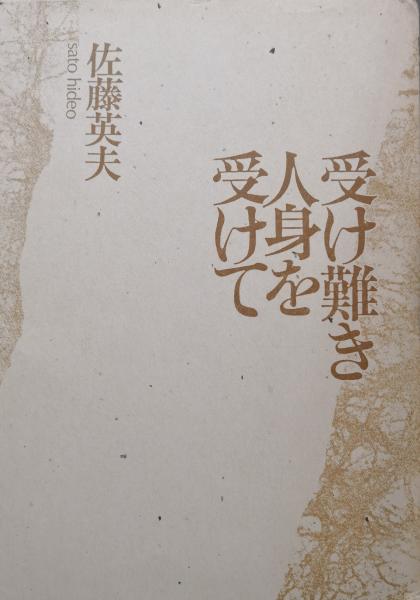 受け難き
人身を
受けて
佐藤英夫
sato hideo